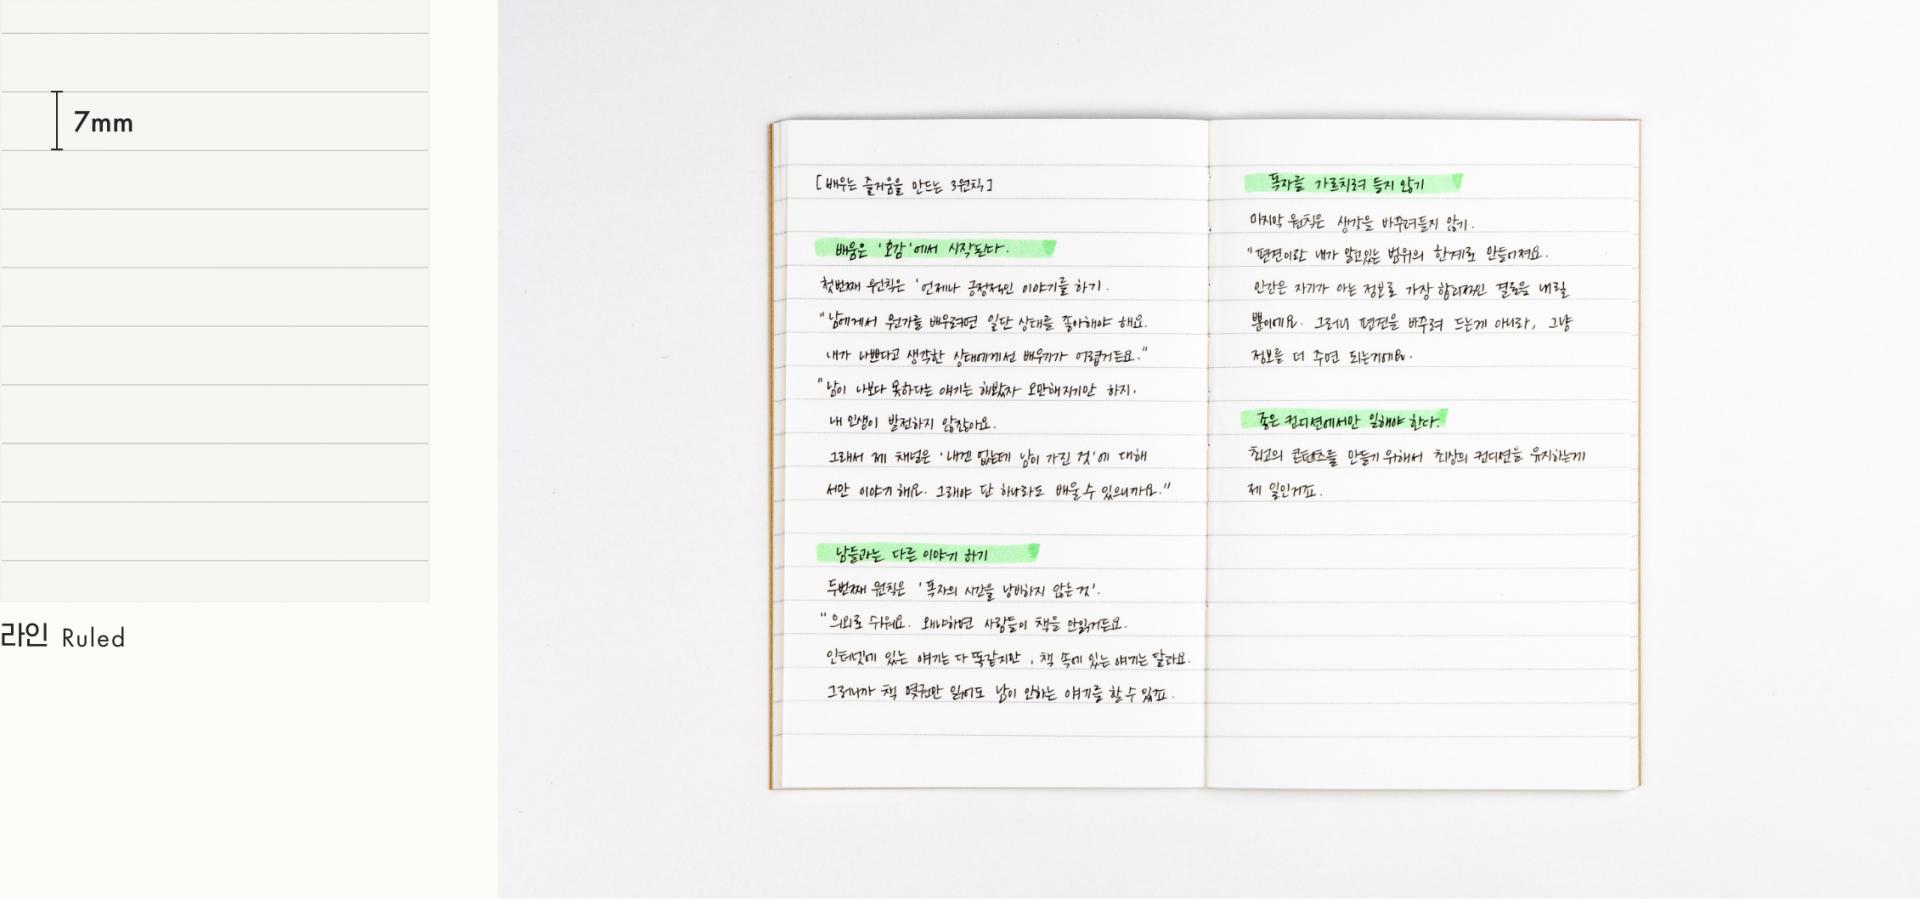 7mm
라인 Ruled
[배우는 즐거움을 만드는 3원칙]
배움은 '호감'에서 시작된다.
첫번째 원칙은 '언제나 긍정적인 이야기를 하기.
"남에게서 뭔가를 배우려면 일단 상대를 좋아해야 해요.
내가 나쁘다고 생각한 상대에게선 배우기가 어렵거든요."
"남이 나보다 못하다는 얘기는 해봤자 오만해지기만 하지.
내 인생이 발전하지 않잖아요.
그래서 제 채널은 '내겐 없는데 남이 가진 것'에 대해
서만 이야기해요. 그래야 단 하나라도 배울 수 있으니까요."
남들과는 다른 이야기 하기
두번째 원칙은 '독자의 시간을 낭비하지 않는 것'.
"의외로 쉬워요. 왜냐하면 사람들이 책을 안읽거든요.
인터넷에 있는 얘기는 다 똑같지만, 책 속에 있는 얘기는 달라요.
그러니까 책 몇권만 읽어도 남이 안하는 얘기를 할 수 있죠.
독자를 가르치려 들지 않기
마지막 원칙은 생각을 바꾸려들지 않기.
"편견이란 내가 알고있는 범위의 한계로 만들어져요.
인간은 자기가 아는 정보로 가장 합리적인 결론을 내릴
뿐이에요. 그러니 편견을 바꾸려 드는게 아니라, 그냥
정보를 더 주면 되는거에요.
좋은 컨디션에서만 일해야 한다.
최고의 콘텐츠를 만들기 위해서 최상의 컨디션을 유지하는게
제 일인거죠.